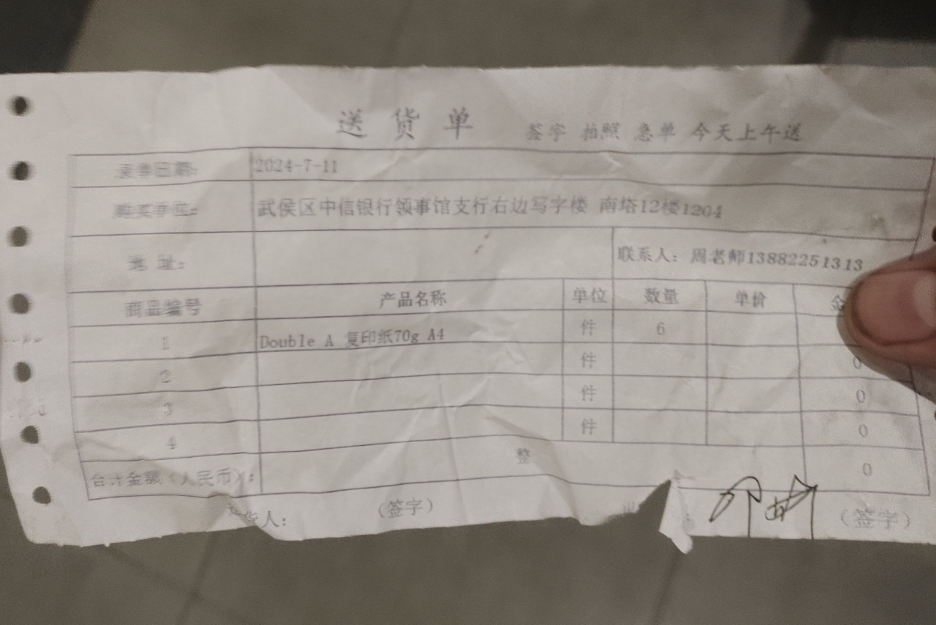 送货单 签字 拍照 急单 今天上午送
日期: 2024-7-11
武侯区中信银行领事馆支行右边写字楼 南塔12楼1204
地址: 联系人: 周老师13882251313
商品编号 产品名称 单位 数量 单价 金
1 Double A 复印纸70g A4 件 6
2 件 0
3 件 0
4 件 0
合计金额(人民币): 整 0
货人: (签字) : (签字)